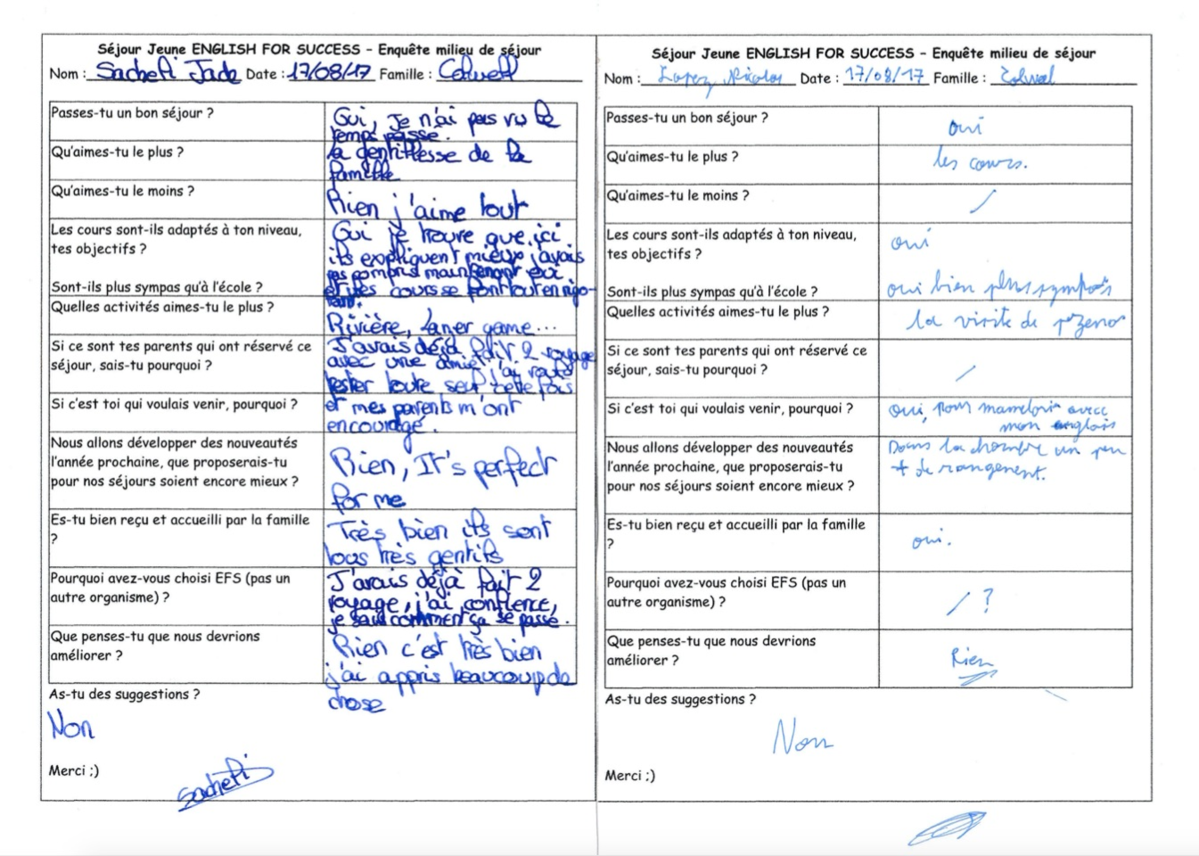 Séjour Jeune ENGLISH FOR SUCCESS - Enquête milieu de séjour
Nom : Jade Date : 17/08/17 Famille :
Passes-tu un bon séjour ?
Oui, Je n'ai pas vu le
temps passé.
Qu'aimes-tu le plus ?
la gentillesse de la
famille
Qu'aimes-tu le moins ?
Rien j'aime tout
Les cours sont-ils adaptés à ton niveau,
tes objectifs ?
Sont-ils plus sympas qu'à l'école ?
Oui je trouve que ici
ils expliquent mieux j'avais
pas compris maintenant oui
et les cours se font tout en rigo-
lant.
Quelles activités aimes-tu le plus ?
Rivière, game...
Si ce sont tes parents qui ont réservé ce
séjour, sais-tu pourquoi ?
J'avais déjà fait 2 voyage
avec une amie j'ai
tester toute seul cette fois
Si c'est toi qui voulais venir, pourquoi ?
et mes parents m'ont
encouragé.
Nous allons développer des nouveautés
l'année prochaine, que proposerais-tu
pour nos séjours soient encore mieux ?
Rien, It's perfect
for me
Es-tu bien reçu et accueilli par la famille
?
Très bien ils sont
tous très gentils
Pourquoi avez-vous choisi EFS (pas un
autre organisme) ?
J'avais déjà fait 2
voyage, j'ai confience,
je sais comment ça se passe.
Que penses-tu que nous devrions
améliorer ?
Rien c'est très bien
j'ai appris beaucoup de
chose
As-tu des suggestions ?
Non
Merci ;)
Séjour Jeune ENGLISH FOR SUCCESS - Enquête milieu de séjour
Nom : Lopez Nicolas Date : 17/08/17 Famille :
Passes-tu un bon séjour ?
oui
Qu'aimes-tu le plus ?
les cours.
Qu'aimes-tu le moins ?
/
Les cours sont-ils adaptés à ton niveau,
tes objectifs ?
oui
Sont-ils plus sympas qu'à l'école ?
oui bien plus sympas
Quelles activités aimes-tu le plus ?
la visite de
Si ce sont tes parents qui ont réservé ce
séjour, sais-tu pourquoi ?
/
Si c'est toi qui voulais venir, pourquoi ?
oui, pour avec
mon anglais
Nous allons développer des nouveautés
l'année prochaine, que proposerais-tu
pour nos séjours soient encore mieux ?
Dans la chambre un peu
+ de rangement.
Es-tu bien reçu et accueilli par la famille
?
oui.
Pourquoi avez-vous choisi EFS (pas un
autre organisme) ?
/ ?
Que penses-tu que nous devrions
améliorer ?
Rien
As-tu des suggestions ?
Non
Merci ;)